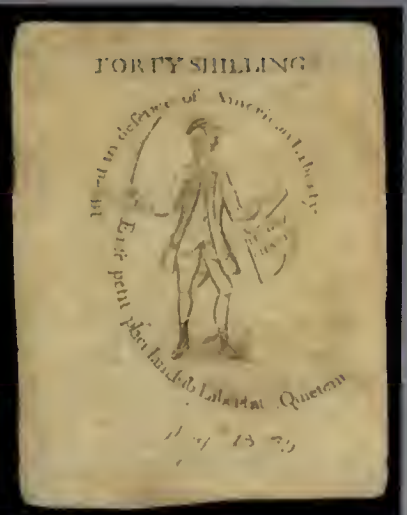 FORTY SHILLING
in defence of American Liberty.
Ense petit placidam sub Libertat Quietem